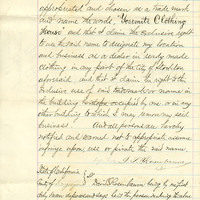 appropriated and chosen as a trade mark
and name the words, "Yosemite Clothing
House" and that I claim the exclusive right
to use the said name to designate my location
and business as a dealer in ready made
clothing in any part of the City of Stockton
aforesaid and that I claim the right to the
exclusive use of said trademark or name in
the building now occupied by me or in any
other building to which I may remove my said
business. And all persons are hereby
notified and warned not to appropriate assume
infringe upon use or pirate the said name.
State of California
County of
being by me first
duly sworn deposes and says he is the person